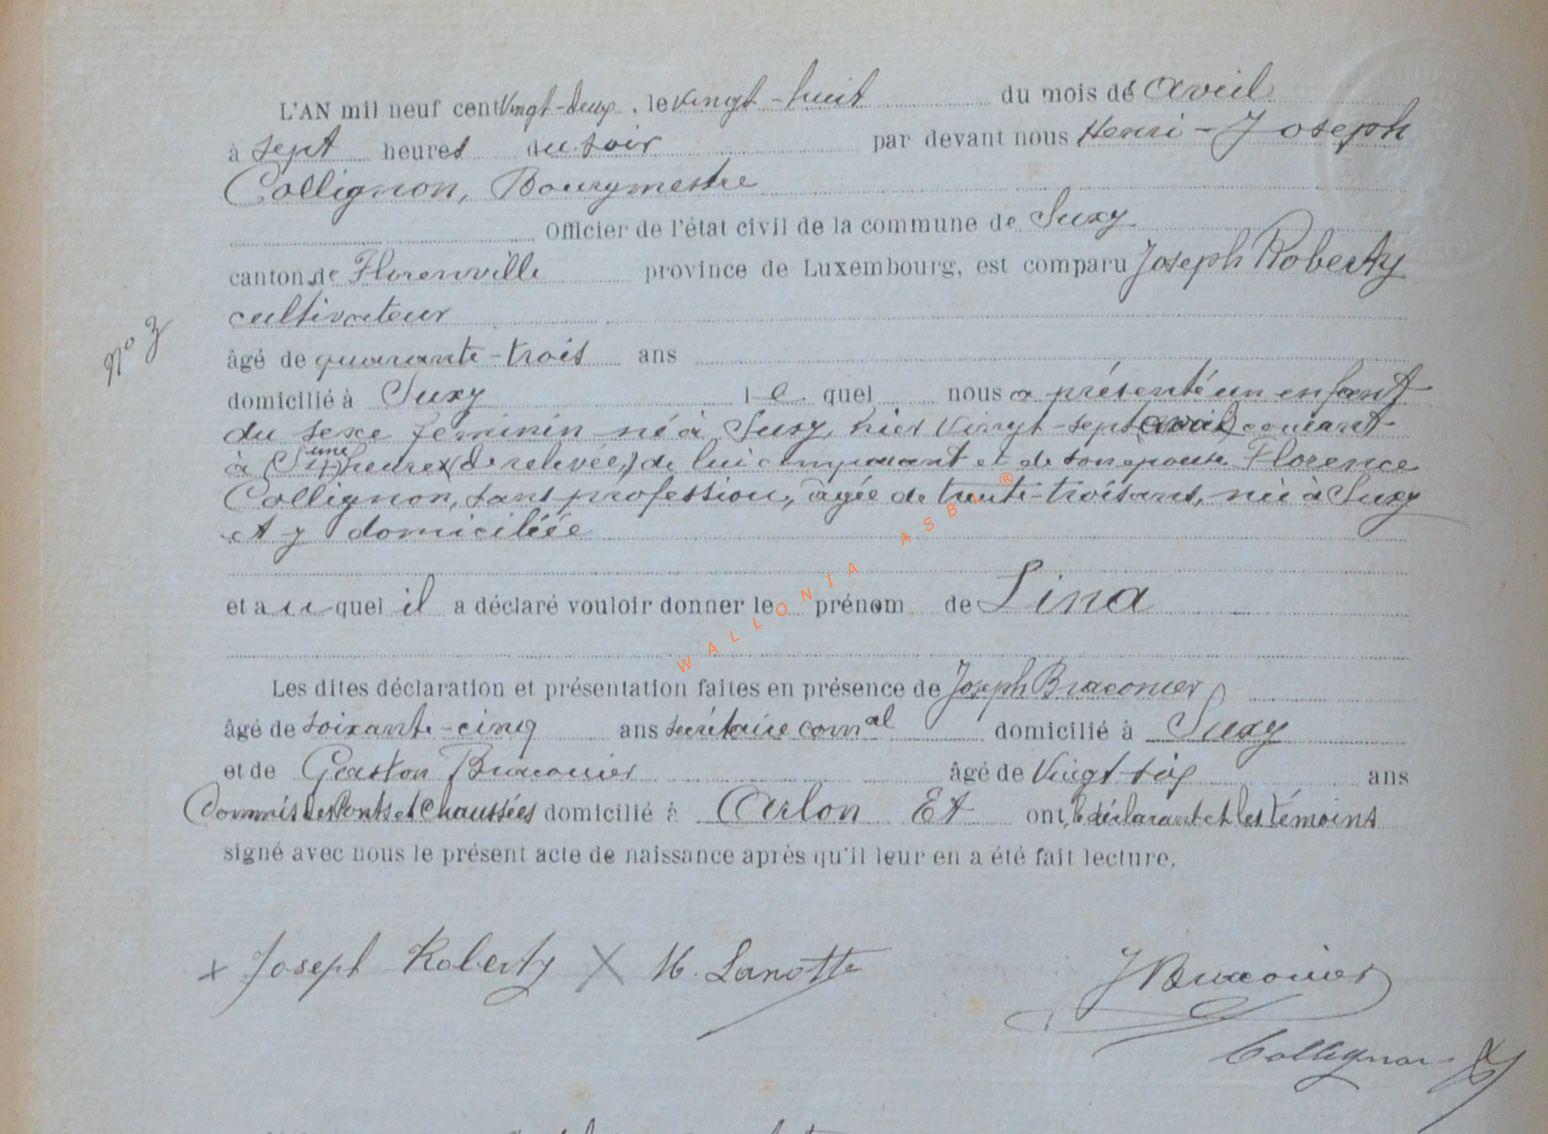 L'AN mil neuf cent Vingt-deux, le vingt-huit du mois de avril
à sept heures du soir par devant nous Henri-Joseph
Collignon, Bourgmestre
Officier de l'état civil de la commune de Suxy
canton de Florenville province de Luxembourg, est comparu Joseph Roberty
cultivateur
N° 3
âgé de quarante-trois ans
domicilié à Suxy le quel nous a présenté un enfant
du sexe féminin né à Suxy, hier Vingt-sept (avril) courant
une
à heures (de relevée,) de lui comparant et de son epouse Florence
Collignon, sans profession, âgée de trente-trois ans, née à Suxy
et y domiciliée
et auquel il a déclaré vouloir donner le prénom de Lina
Les dites déclaration et présentation faites en présence de Joseph Braconier
âgé de soixante-cinq ans secrétaire comal domicilié à Suxy
et de Gaston Braconier âgé de Vingt-six ans
Commis des Ponts et Chaussées domicilié à Arlon Et ont, le déclarant et les témoins
signé avec nous le présent acte de naissance après qu'il leur en a été fait lecture.
x Joseph Roberty X M. Lanotte J Braconier
Collignon HJ
WALLONIA ASBL ®